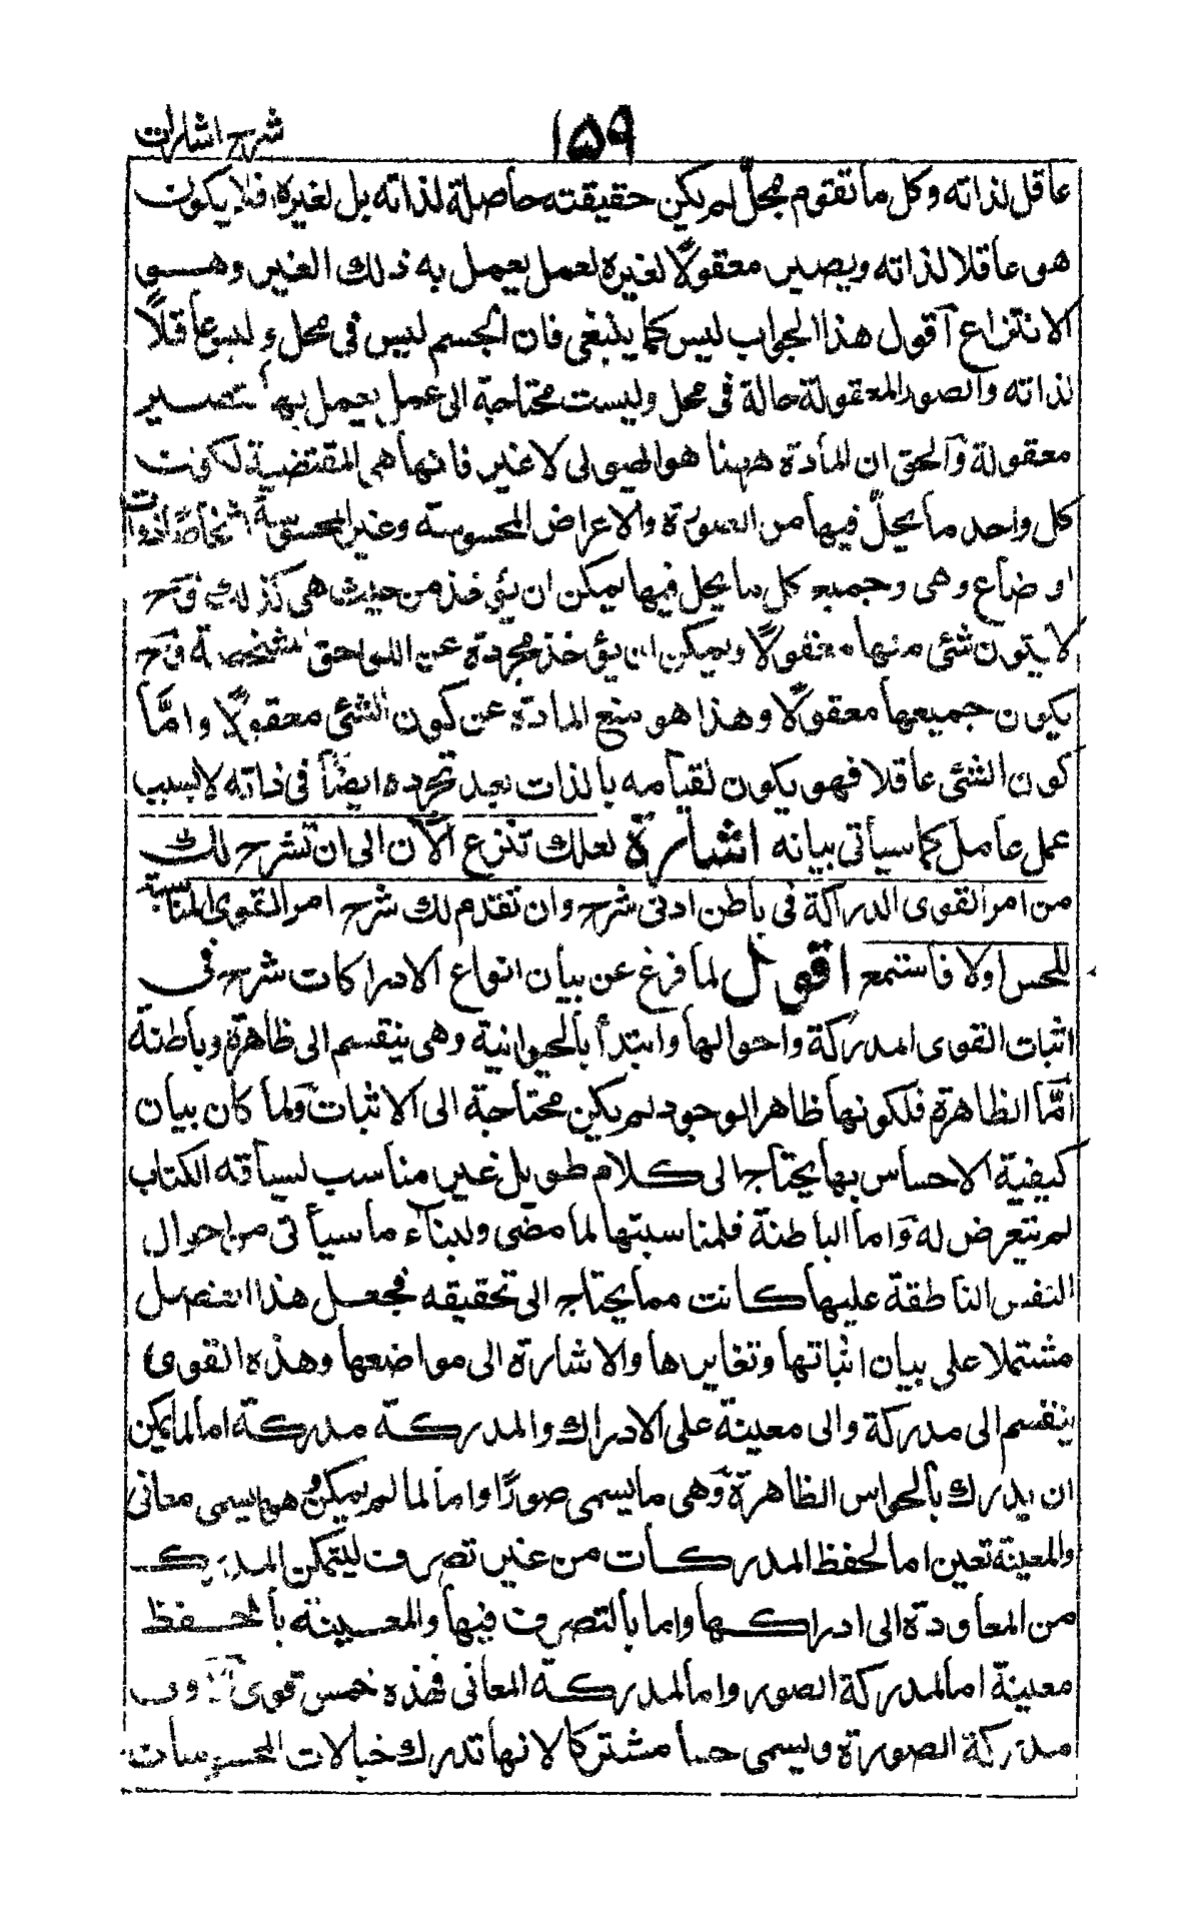 شرح اشارات
١٥٩
عاقل لذاته وكل ما تقوم بمحلّ لم يكن حقيقته حاصلة لذاته بل لغيره فلا يكون
هو عاقلا لذاته ويصير معقولًا لغيره لعمل يعمل به ذلك الغير وهو
الانتزاع أقول هذا الجواب ليس كما ينبغي فان الجسم ليس في محل وليس عاقلًا
لذاته والصور المعقولة حالة في محل وليست محتاجة الى عمل يعمل بها تصير
معقولة والحق ان المادة ههنا هو الهيولى لا غير فانها هي المقتضية لكون
كل واحد ما يحلّ فيها من الصورة والاعراض المحسوسة وغير المحسوسة اشخاصًا ذوات
اوضاع وهى وجميع كل ما يحل فيها يمكن ان يؤخذ من حيث هى كذلك فح
لا يكون شئى منها معقولًا ويمكن ان يؤخذ مجردة عن اللواحق مشخصة فح
يكون جميعها معقولًا وهذا هو منع المادة عن كون الشئى معقولًا وامّا
كون الشئى عاقلا فهو يكون لقيامه بالذات بعد تجرده ايضًا فى ذاته لا بسبب
عمل عامل كما سيأتى بيانه اشارة لعلك تنزع الآن الى ان نشرح لك
من امر القوى الدراكة فى باطن ادنى شرح وان تقدم لك شرح امر القوى المناسبة
للحس اولا فاستمع اقول لما فرغ عن بيان انواع الادراكات شرح فى
اثبات القوى المدركة واحوالها وابتدأ بالحيوانية وهى ينقسم الى ظاهرة وباطنة
امّا الظاهرة فلكونها ظاهر الوجود لم يكن محتاجة الى الاثبات ولما كان بيان
كيفية الاحساس بها يحتاج الى كلام طويل غير مناسب لسياقه الكتاب
لم نتعرض له واما الباطنة فلمناسبتها لما مضى ولبناء ما سيأتى من احوال
النفس الناطقة عليها كانت مما يحتاج الى تحقيقه فجعل هذا الفصل
مشتملا على بيان اثباتها وتغايرها والاشارة الى مواضعها وهذه القوى
ينقسم الى مدركة والى معينة على الادراك والمدركة مدركة اما لما يمكن
ان يدرك بالحواس الظاهرة وهى ما يسمى صورًا واما لما لم يمكن وهو ما يسمى معانى
والمعينة تعين اما لحفظ المدركات من غير تصرف ليتمكن المدرك
من المعاودة الى ادراكها واما بالتصرف فيها والمعينة بالحفظ
معينة اما لمدركة الصور واما لمدركة المعانى فهذه خمس قوى الاولى
مدركة الصورة ويسمى حسا مشتركا لانها تدرك خيالات المحسوسات